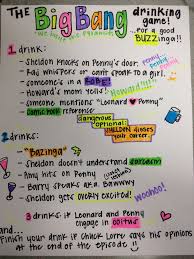 THE Big Bang drinking game!
...for a good BUZZinga!!
1 drink:
- Sheldon knocks on Penny's door. penny, penny, penny
- Raj whispers or can't speak to a girl.
- someone is in a ROBE!
- Howard's mom yells! Howard!!!!
- someone mentions "Leonard ♥ Penny"
- comic book reference
dangerous, optional:
SHELDON disses your career.
2 drinks:
- "Bazinga"
- Sheldon doesn't understand sarcasm
- Amy hits on Penny
- Barry speaks
- Sheldon gets overly excited! woohoo!
3 drinks if Leonard and Penny engage in coitus
and...
Finish your drink if Chuck Lorre says his opinions at the end of the episode!!